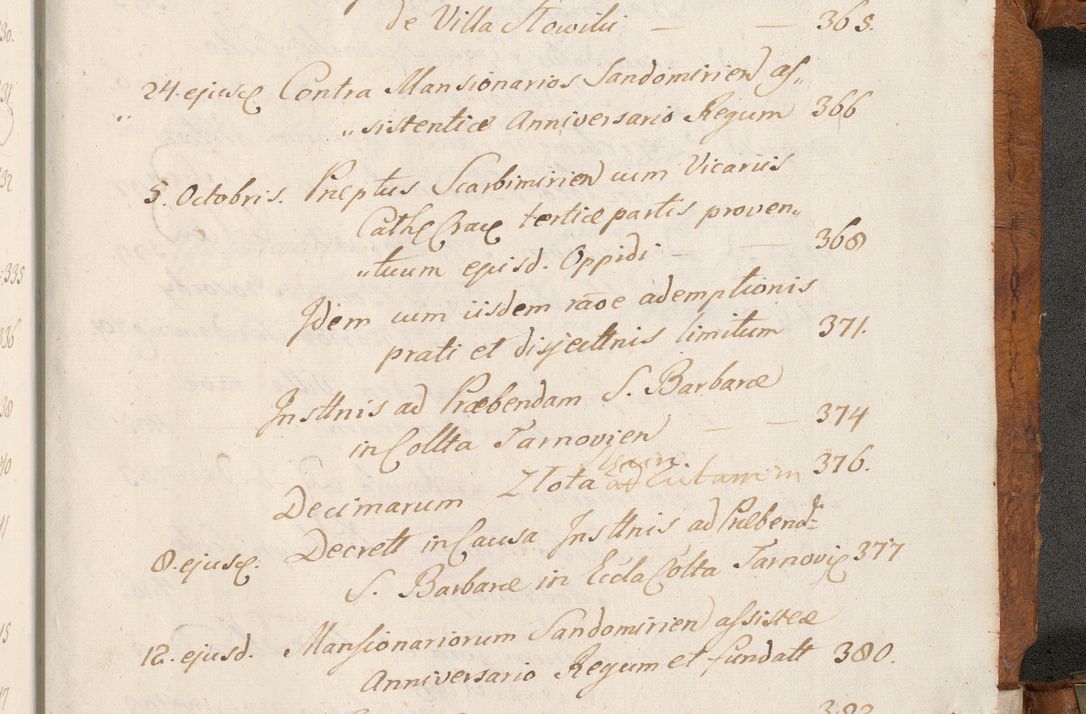 de Villa Slowilii — — 365.
24. ejusq Contra Mansionarios Sandomirien as„
„ „sistentiæ Anniversario Regum 366
5. Octobris. Pneptus Scarbimirien cum Vicariis
Cathq Craq tertiæ partis proven„
„tuum ejusd. Oppidi — — 368
Idem cum iisdem raoe ademptionis
prati et disjecttnis limitum 371.
Insttnis ad Præbendam S. Barbaræ
in Collta Tarnovien — — 374
Decimarum Złota 376.
8. ejusq. Decrett in Causa Insttnis ad Præbend
S. Barbaræ in Eccla Colta Tarnoviq 377
12. ejusd. Mansionariorum Sandomirien assisteæ
Anniversario Regum et fundatt 380.
383
230.
231
232
335
336